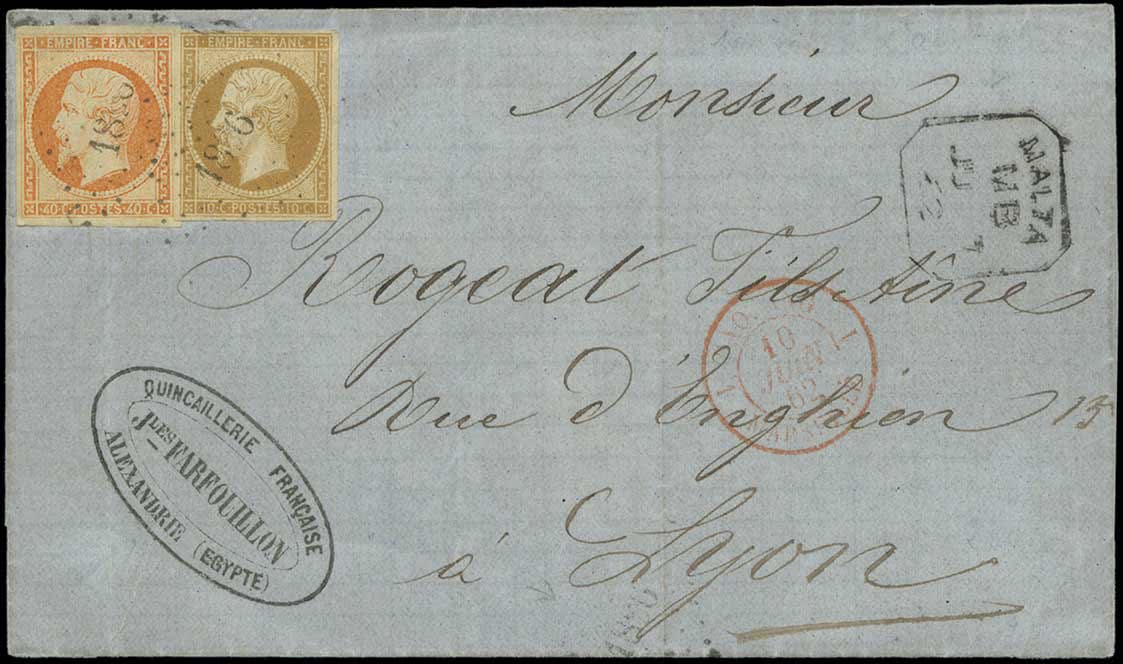 EMPIRE FRANC
40 C POSTES 40 C
EMPIRE FRANC
10 C POSTES 10 C
Monsieur
MALTA
MB
Rogeat Fils Ainé
Rue d'Enghien 15
à Lyon
10
JUIN
62
QUINCAILLERIE FRANÇAISE
Jles FARFOUILLON
ALEXANDRIE (EGYPTE)